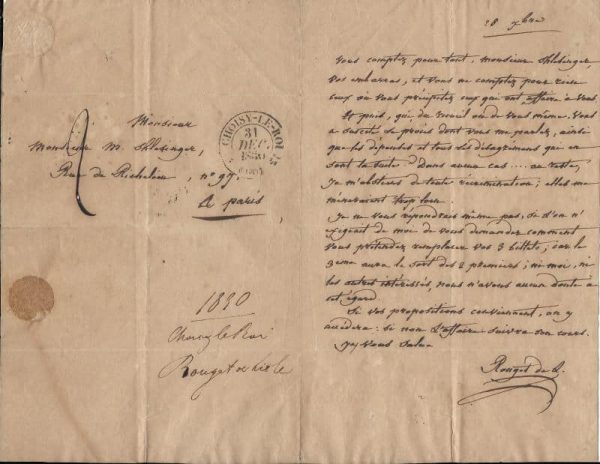 Monsieur
Monsieur M. Shlesinger,
Rue de Richelieu, n° 97.
à paris
CHOISY-LE-ROI
31
DEC.
1830
1830
Choisy le Roi
Rouget de Lisle
28 xbre
Vous comptez pour tout, monsieur Shlesinger,
vos embarras, et vous ne comptez pour rien
ceux où vous précipitez ceux qui ont affaire à vous.
Et puis, qui, du recueil ou de vous même, vous
a suscité le procès dont vous me parlez, ainsi
que les dépenses et tous les désagrémens qui en
sont la suite? Dans aucun cas .... au reste,
Je m'abstiens de toute récrimination; elles me
mèneraient trop loin
Je ne vous répondrais même pas, si l'on n'
exigeait de moi de vous demander comment
vous prétendez remplacer vos 3 billets, car le
3eme aura le sort des 2 premiers; ni moi, ni
les autres intéressés, nous n'avons aucun doute à
cet égard
Si vos propositions conviennent, on y
accédera: si non l'affaire suivra son cours.
Je vous salue
Rouget de L.